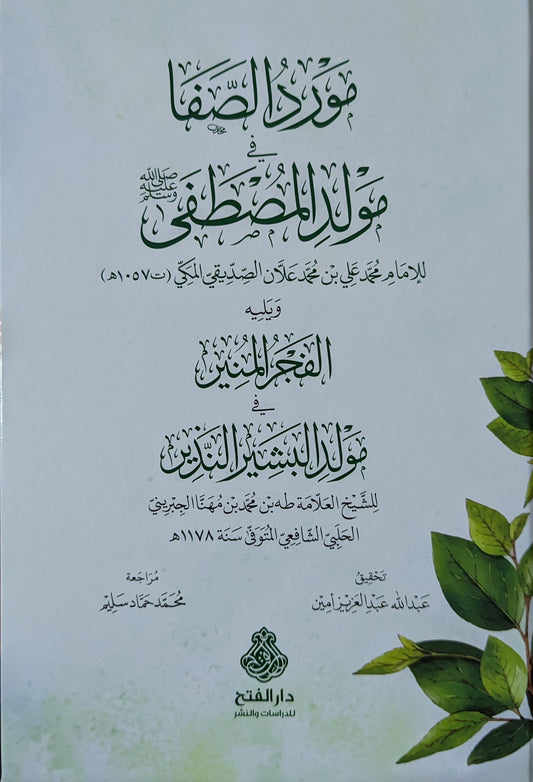 مَوْرِدُ الصَّفَا
في
مَوْلِدِ المُصْطَفَى ﷺ
للإمَامِ مُحَمَّد عَلي بْن مُحَمَّد عَلَّان الصِّدِّيقيّ المَكِّيّ (ت ١٠٥٧هـ)
وَيَلِيه
الفَجْرُ المُنِير
في
مَوْلِدِ البَشِيرِ النَّذِير
لِلشَّيْخِ العَلَّامَة طه بْن مُحَمَّد بْن مُهَنَّا الجِبْرِينيّ
الحَلَبِيّ الشَّافِعِيّ المُتَوَفَّى سَنَة ١١٧٨هـ
تَحْقِيقُ
عَبدالله عَبدالعَزيز أمين
مُرَاجَعَة
مُحَمَّد حَمَّاد سَلِيم
دار الفتح
للدراسات والنشر